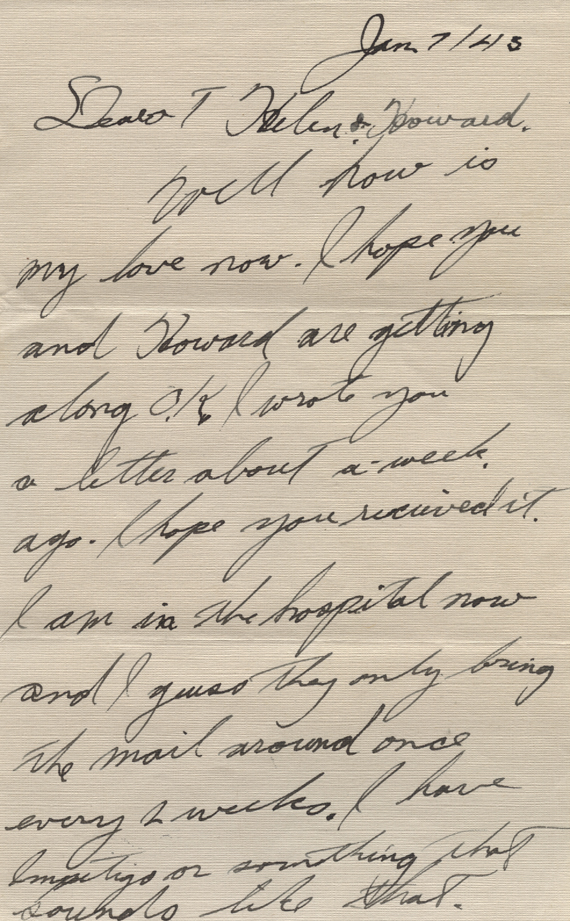 Jan 7/43
Dearest Helen & Howard.
Well how is
my love now. I hope you
and Howard are getting
along O.K. I wrote you
a letter about a-week.
ago. I hope you recieved it.
I am in the hospital now
and I guess they only bring
the mail around once
every 2 weeks. I have
Impetigo or something that
sounds like that.